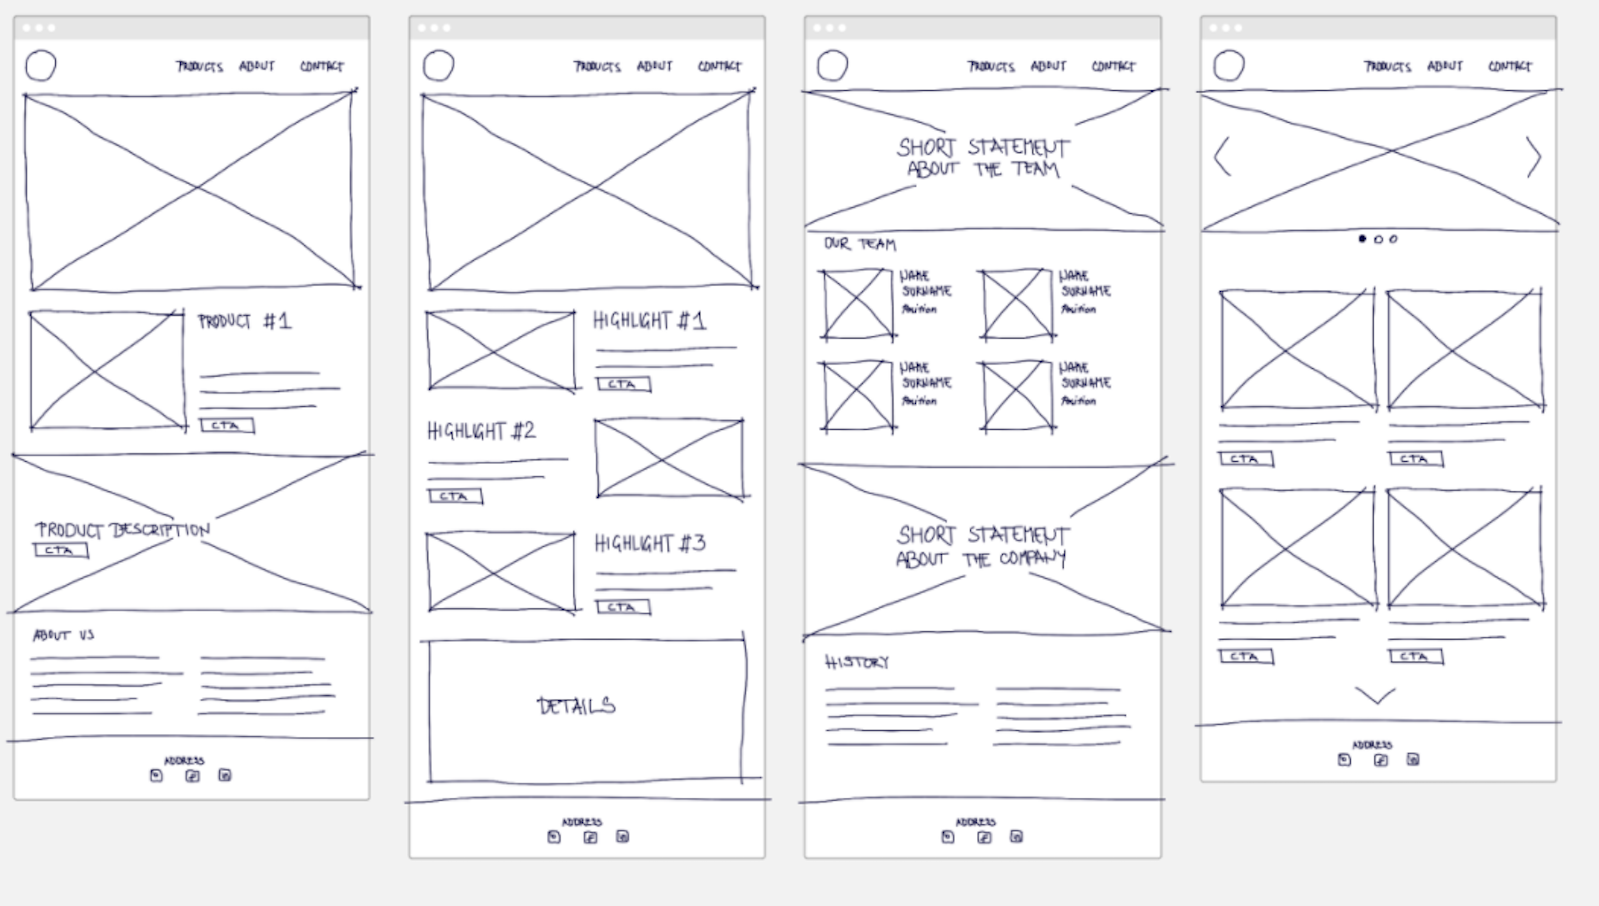 PRODUCTS ABOUT CONTACT
PRODUCT #1
CTA
PRODUCT DESCRIPTION
CTA
ABOUT US
ADDRESS
PRODUCTS ABOUT CONTACT
HIGHLIGHT #1
CTA
HIGHLIGHT #2
CTA
HIGHLIGHT #3
CTA
DETAILS
ADDRESS
PRODUCTS ABOUT CONTACT
SHORT STATEMENT
ABOUT THE TEAM
OUR TEAM
NAME
SURNAME
Position
NAME
SURNAME
Position
NAME
SURNAME
Position
NAME
SURNAME
Position
SHORT STATEMENT
ABOUT THE COMPANY
HISTORY
ADDRESS
PRODUCTS ABOUT CONTACT
CTA
CTA
CTA
CTA
ADDRESS